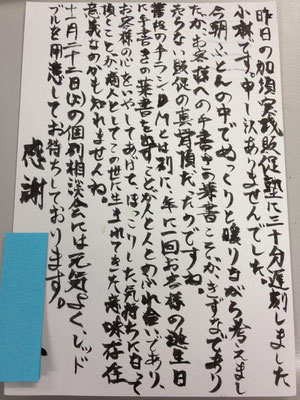 昨日の加須実践販促塾に三十分遅刻しました
です。申し訳ありませんでした。
今朝、ふとんの中でぬっくりと暖りながら考えまし
たが、お客様への手書きの葉書こそが、きずなであり
売らない販促の真骨頂だったのですね。
のチラシ、DMとは別に、年に一回お客様の誕生日
に手書きの葉書を出すことが人と人とのふれ合いであり、
お客様の心をいやしてあげて、ほっこりした気持ちになって
頂くことが商人としてこの世に生まれてきた意味存在
意義なのかも知れませんね。
十一月二十二日の個別相談会には元気よく、レッド
ブルを用意してお待ちしております。
感謝